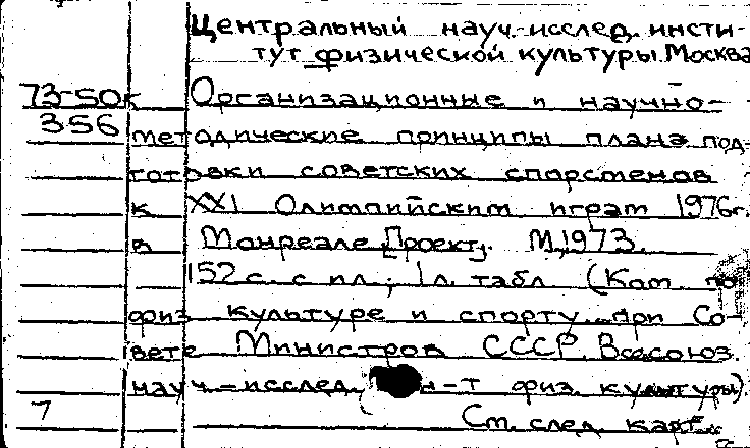 Центральный науч.-исслед. инсти-
тут физической культуры. Москва
73-50к Организационные и научно-
356 методические принципы плана под-
готовки советских спортсменов
к XXI Олимпийским играм 1976г.
в Монреале [Проект]. М, 1973.
152 с. с ил.; 1 л. табл (Ком. по
физ культуре и спорту при Со-
вете Министров СССР. Всесоюз.
науч.-исслед. ин-т физ. культуры).
7 См. след. карт.